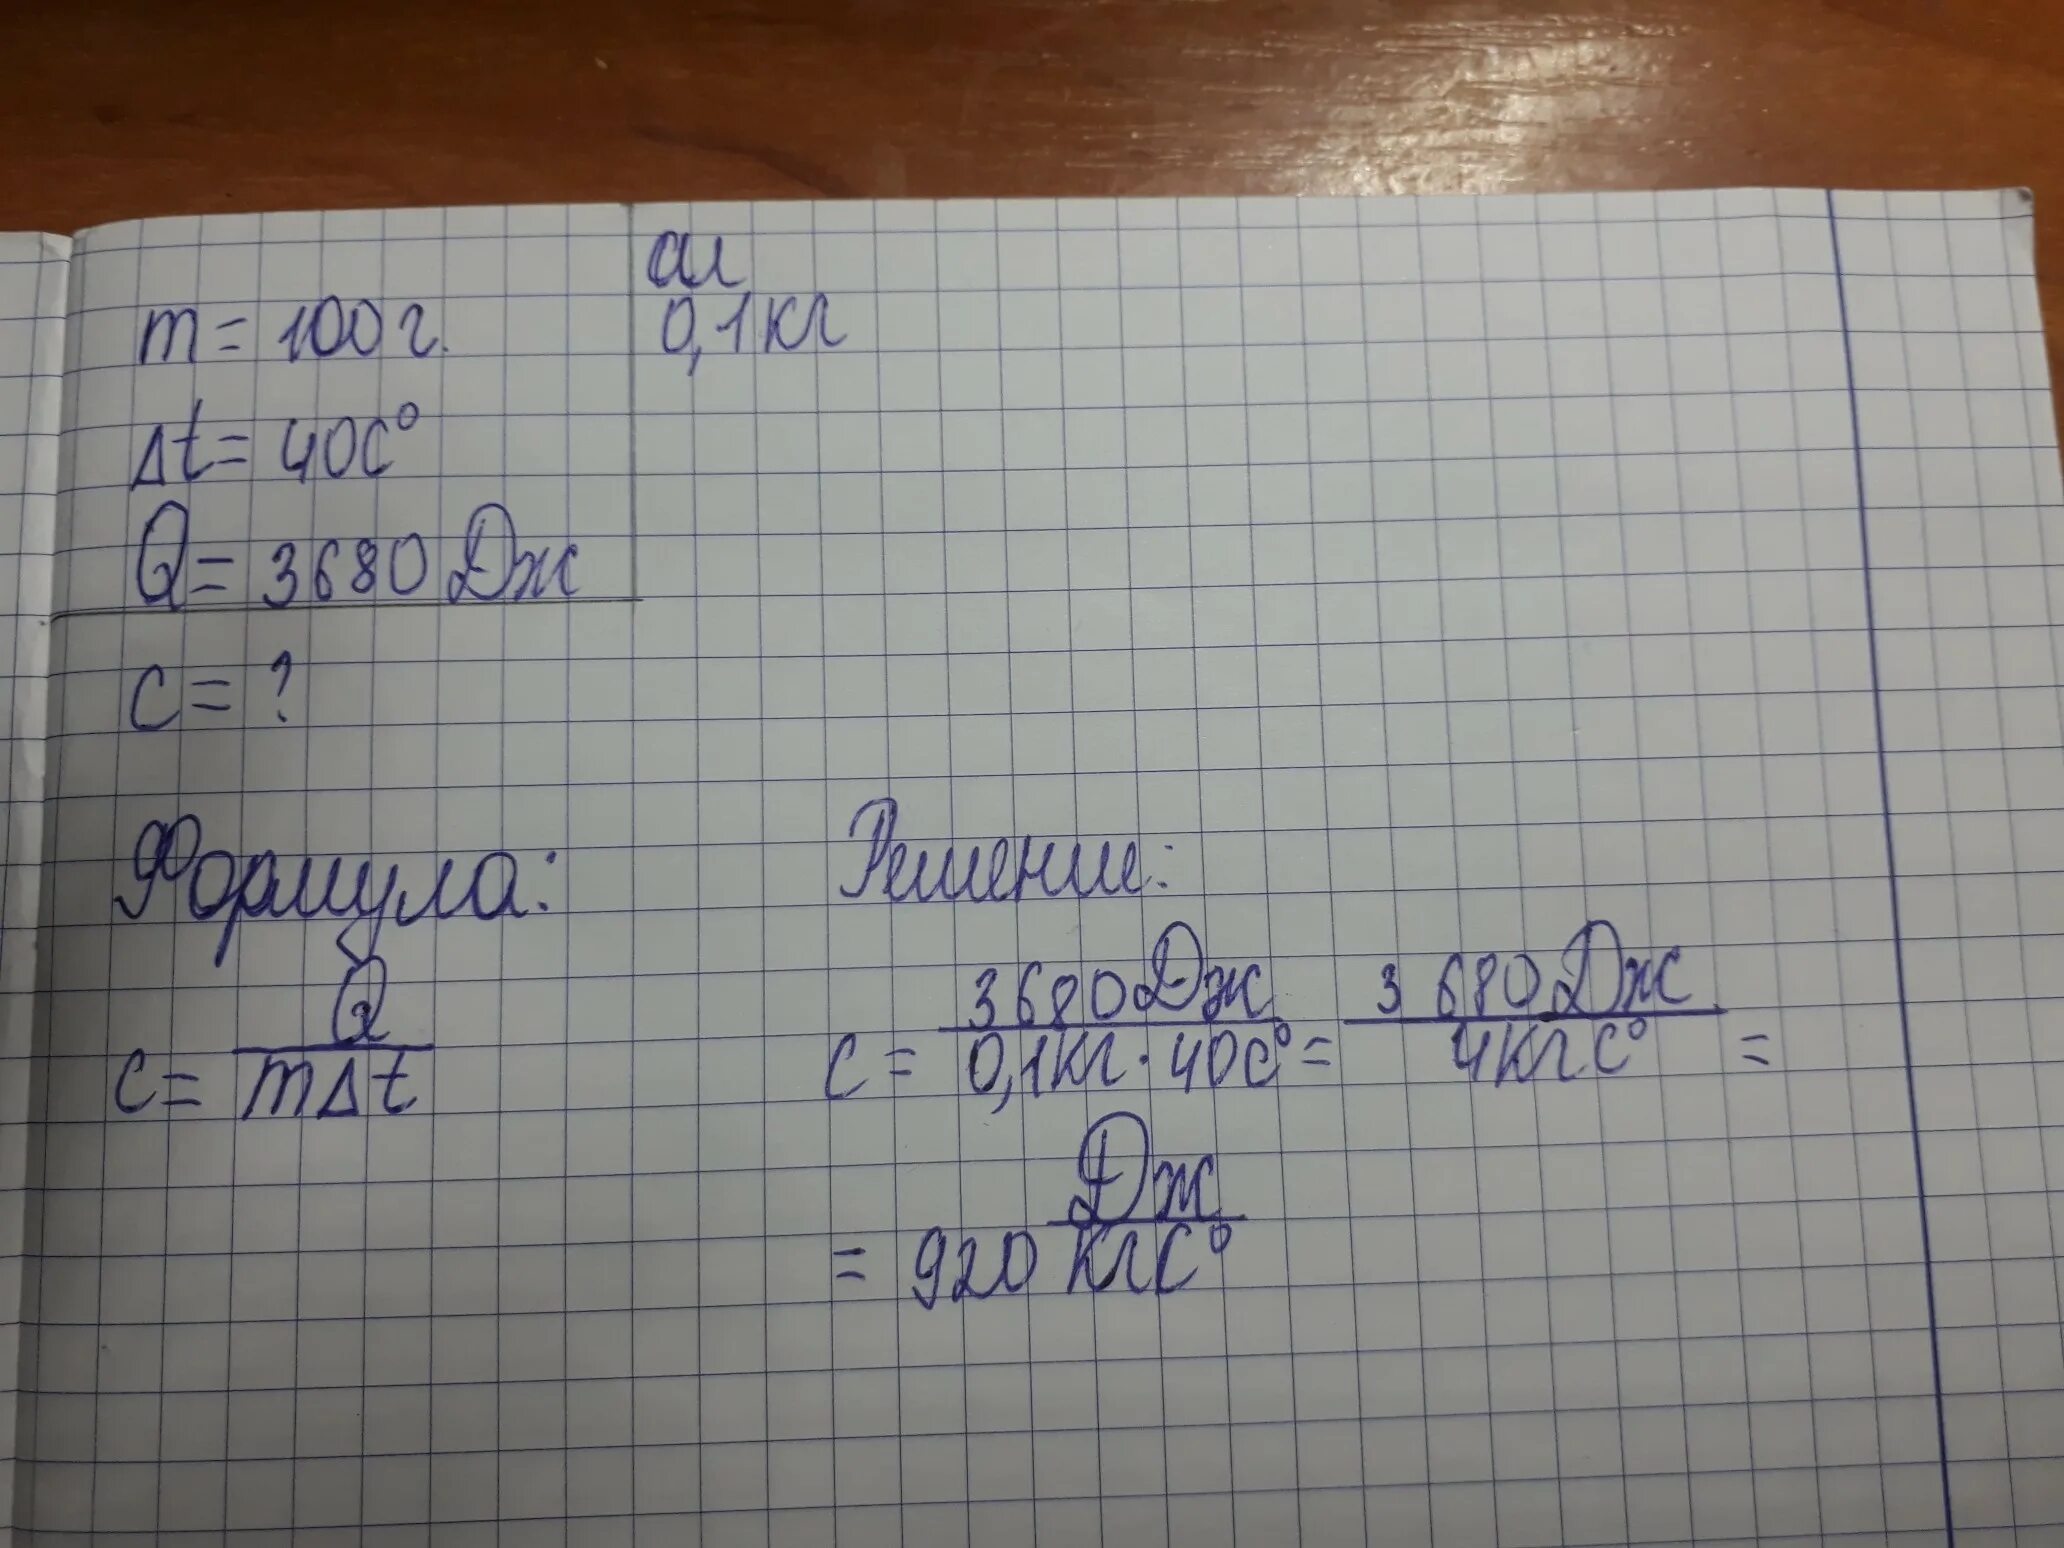 си
m = 100 г. 0,1 кг
Δt = 40 С°
Q = 3680 Дж
с = ?
Формула:
c = Q / mΔt
Решение:
c = 3680 Дж / 0,1 кг · 40 С° = 3 680 Дж / 4 кг С° =
= 920 Дж / кг С°